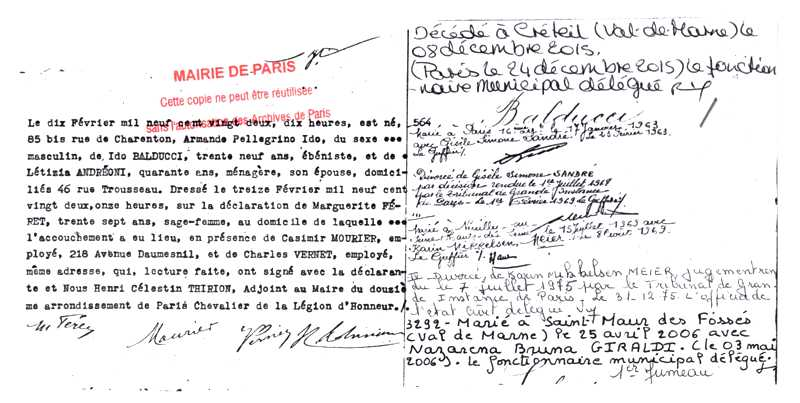 MAIRIE DE PARIS
Cette copie ne peut être réutilisée
sans l'autorisation des Archives de Paris
Le dix Février mil neuf cent vingt deux, dix heures, est né,
85 bis rue de Charenton, Armande Pellegrino Ido, du sexe
masculin, de Ido BALDUCCI, trente neuf ans, ébéniste, et de
Létizia ANDRÉONI, quarante ans, ménagère, son épouse, domici-
liés 46 rue Trousseau. Dressé le treize Février mil neuf cent
vingt deux,onze heures, sur la déclaration de Marguerite FÉ-
RET, trente sept ans, sage-femme, au domicile de laquelle
l'accouchement a eu lieu, en présence de Casimir MOURIER, em-
ployé, 218 Avenue Daumesnil, et de Charles VERNET, employé,
même adresse, qui, lecture faite, ont signé avec la déclaran-
te et Nous Henri Célestin THIRION, Adjoint au Maire du douziè
me arrondissement de Paris Chevalier de la Légion d'Honneur./.
Mourier
Décédé à Créteil (Val-de-Marne) le
08 décembre 2015.
(Paris le 24 décembre 2015) le fonction
-naire municipal délégué
564
Balducci
Marié à Paris 12e le 17 janvier 1963
avec Gisèle Simone Sandré
Le Greffier
Divorcé de Gisèle Simone SANDRÉ
par décision rendue le 1er juillet 1968
par le tribunal de Grande Instance
Le 1er Février 1969 Le Greffier
Marié à Neuilly-sur
Seine le 15 juillet 1969 avec
Karin MIKKELSEN MEIER le 8 août 1969.
Le Greffier
Divorcé, de Karin Mikkelsen MEIER, jugement ren
du le 7 juillet 1975 par le Tribunal de Gran
de Instance de Paris. Le 31-12-75 L'officier de
l'état civil délégué
3292 - Marié à Saint-Maur des Fossés
(Val de Marne) le 25 avril 2006 avec
Nazarena Bruna GIRALDI. (le 03 mai
2006). Le fonctionnaire municipal délégué.
Jumeau